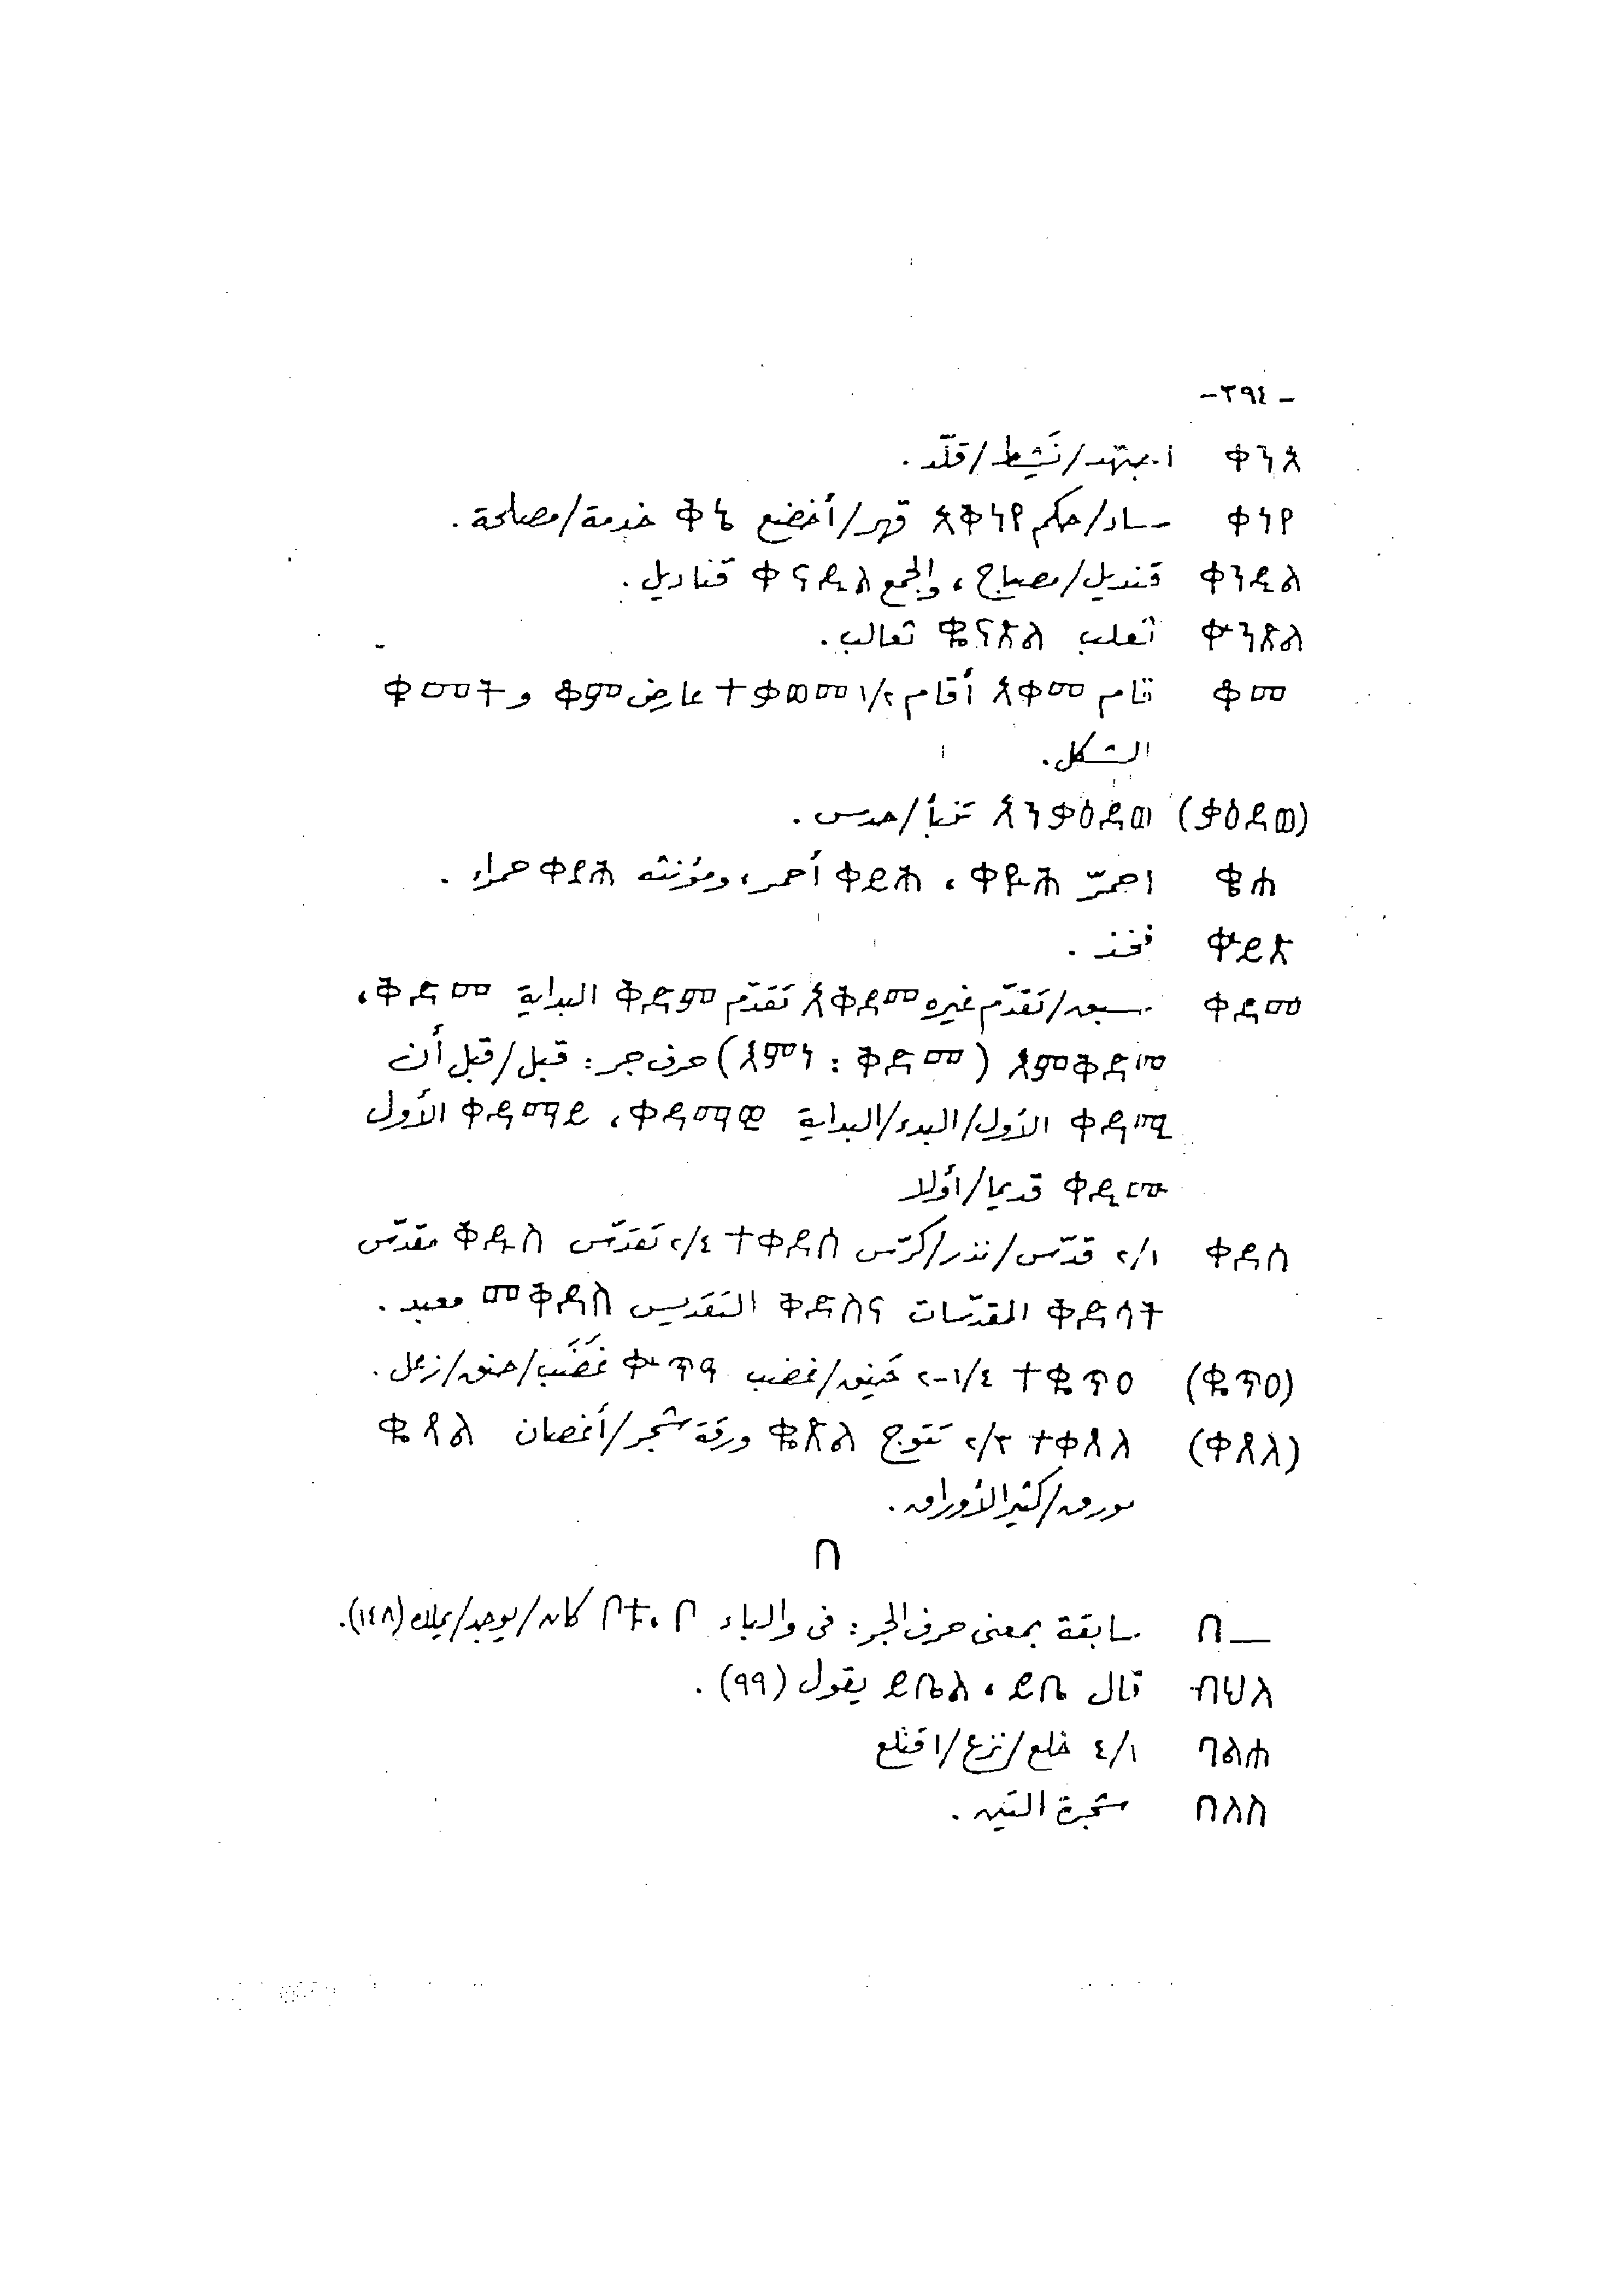 - ٣٩٤ -
ቀንአ اجتهد/نَشِط/قلّد.
ቀነየ ساد/حكم አቅነየ قهر/أخضع ቅኔ خدمة/مصلحة.
ቀንዲል قنديل/مصباح، والجمع ቀናዲል قناديل.
ቈንጽል ثعلب ቈናጽል ثعالب.
ቆመ قام አቀመ أقام ١/٢ ተቃወመ عارض ቆም و ቆመት
الشكل.
(ቃዕደወ) አንቃዕደወ تنبأ/حدس.
ቄሐ احمرّ ቀይሐ، ቀይሕ أحمر، ومؤنثه ቀያሕ حمراء.
ቍይጽ فخذ.
ቀደመ سبق/تقدّم غيره አቅደመ تقدّم ቅድም البداية ቅድመ،
እምቅድመ (ቅድመ : እምነ) حرف جر: قبل/قبل أن
ቀዳሚ الأول/البدء/البداية ቀዳማዊ، ቀዳማይ الأول
ቀዲሙ قديما/أولا
ቀደሰ ٢/١ قدّس/نذر/كرّس ተቀደሰ ٢/٤ تقدّس ቅዱስ مقدّس
ቅድሳት المقدّسات ቅድስና التقديس መቅደስ معبد.
(ቈጥዐ) ተቈጥዐ ٤/١-٢ حَنِق/غضب ቍጥዓ غَضَب/حنق/زعل.
(ቀጸለ) ተቀጸለ ٣/٢ تتوج ቈጽል ورقة شجر/أغصان ቈጹል
مورق/كثير الأوراق.
በ
በ— سابقة بمعنى حرف الجر: فى والباء በ، ቦቱ كان/يوجد/يملك (١٤٨).
ብህለ قال ይቤ، ይብል يقول (٩٩).
በልሐ ٤/١ خلع/نزع/اقتلع
በለስ شجرة التين.